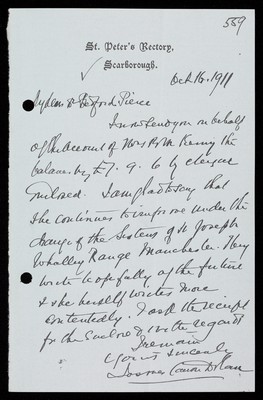 559
St. Peter's Rectory,
Scarborough.
Oct. 16. 1911
My dear Dr Bedford Pierce
I now send you on behalf
of the account of Mrs Kenny the
balance £7. 9. 6 by cheque
enclosed. I am glad to say that
she continues to improve under the
charge of the Sisters of St Joseph
Whalley Range Manchester. They
write hopefully of the future
& she herself writes more
contentedly. I ask the receipt
for the enclosed & with regards
I remain
Yours sincerely
Canon Dolan